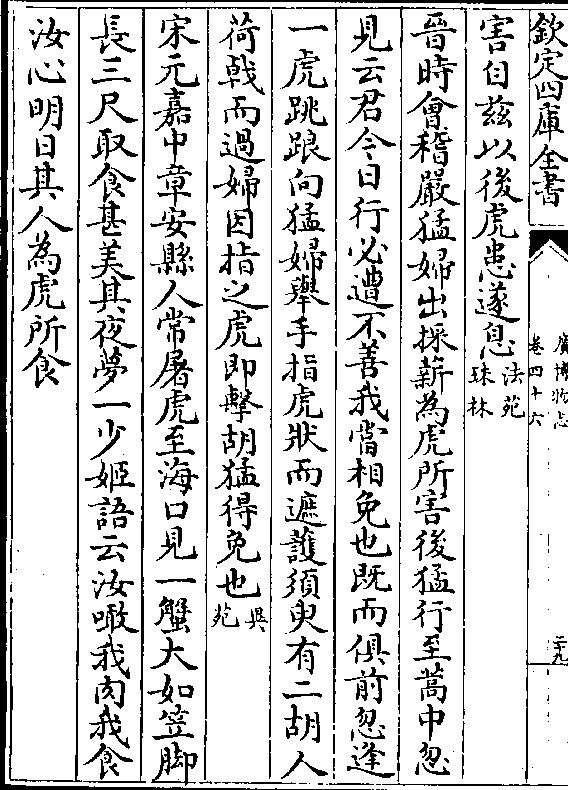 欽定四庫全書
廣博物志
卷四十六
二九
害自兹以後虎患遂息法苑珠林
晉時會稽嚴猛婦出採薪為虎所害後猛行至蒿中忽
見云君今日行必遭不善我當相免也既而俱前忽逢
一虎跳踉向猛婦舉手指虎狀而遮護須臾有二胡人
荷戟而過婦因指之虎即擊胡猛得免也異苑
宋元嘉中章安縣人常屠虎至海口見一蟹大如笠脚
長三尺取食甚美其夜夢一少姬語云汝噉我肉我食
汝心明日其人為虎所食